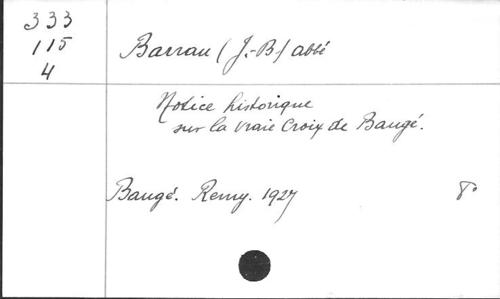 333
115
4
Barrau (J.-B) abbé
Notice historique
sur la vraie Croix de Baugé.
Baugé. Remy. 1927 8°